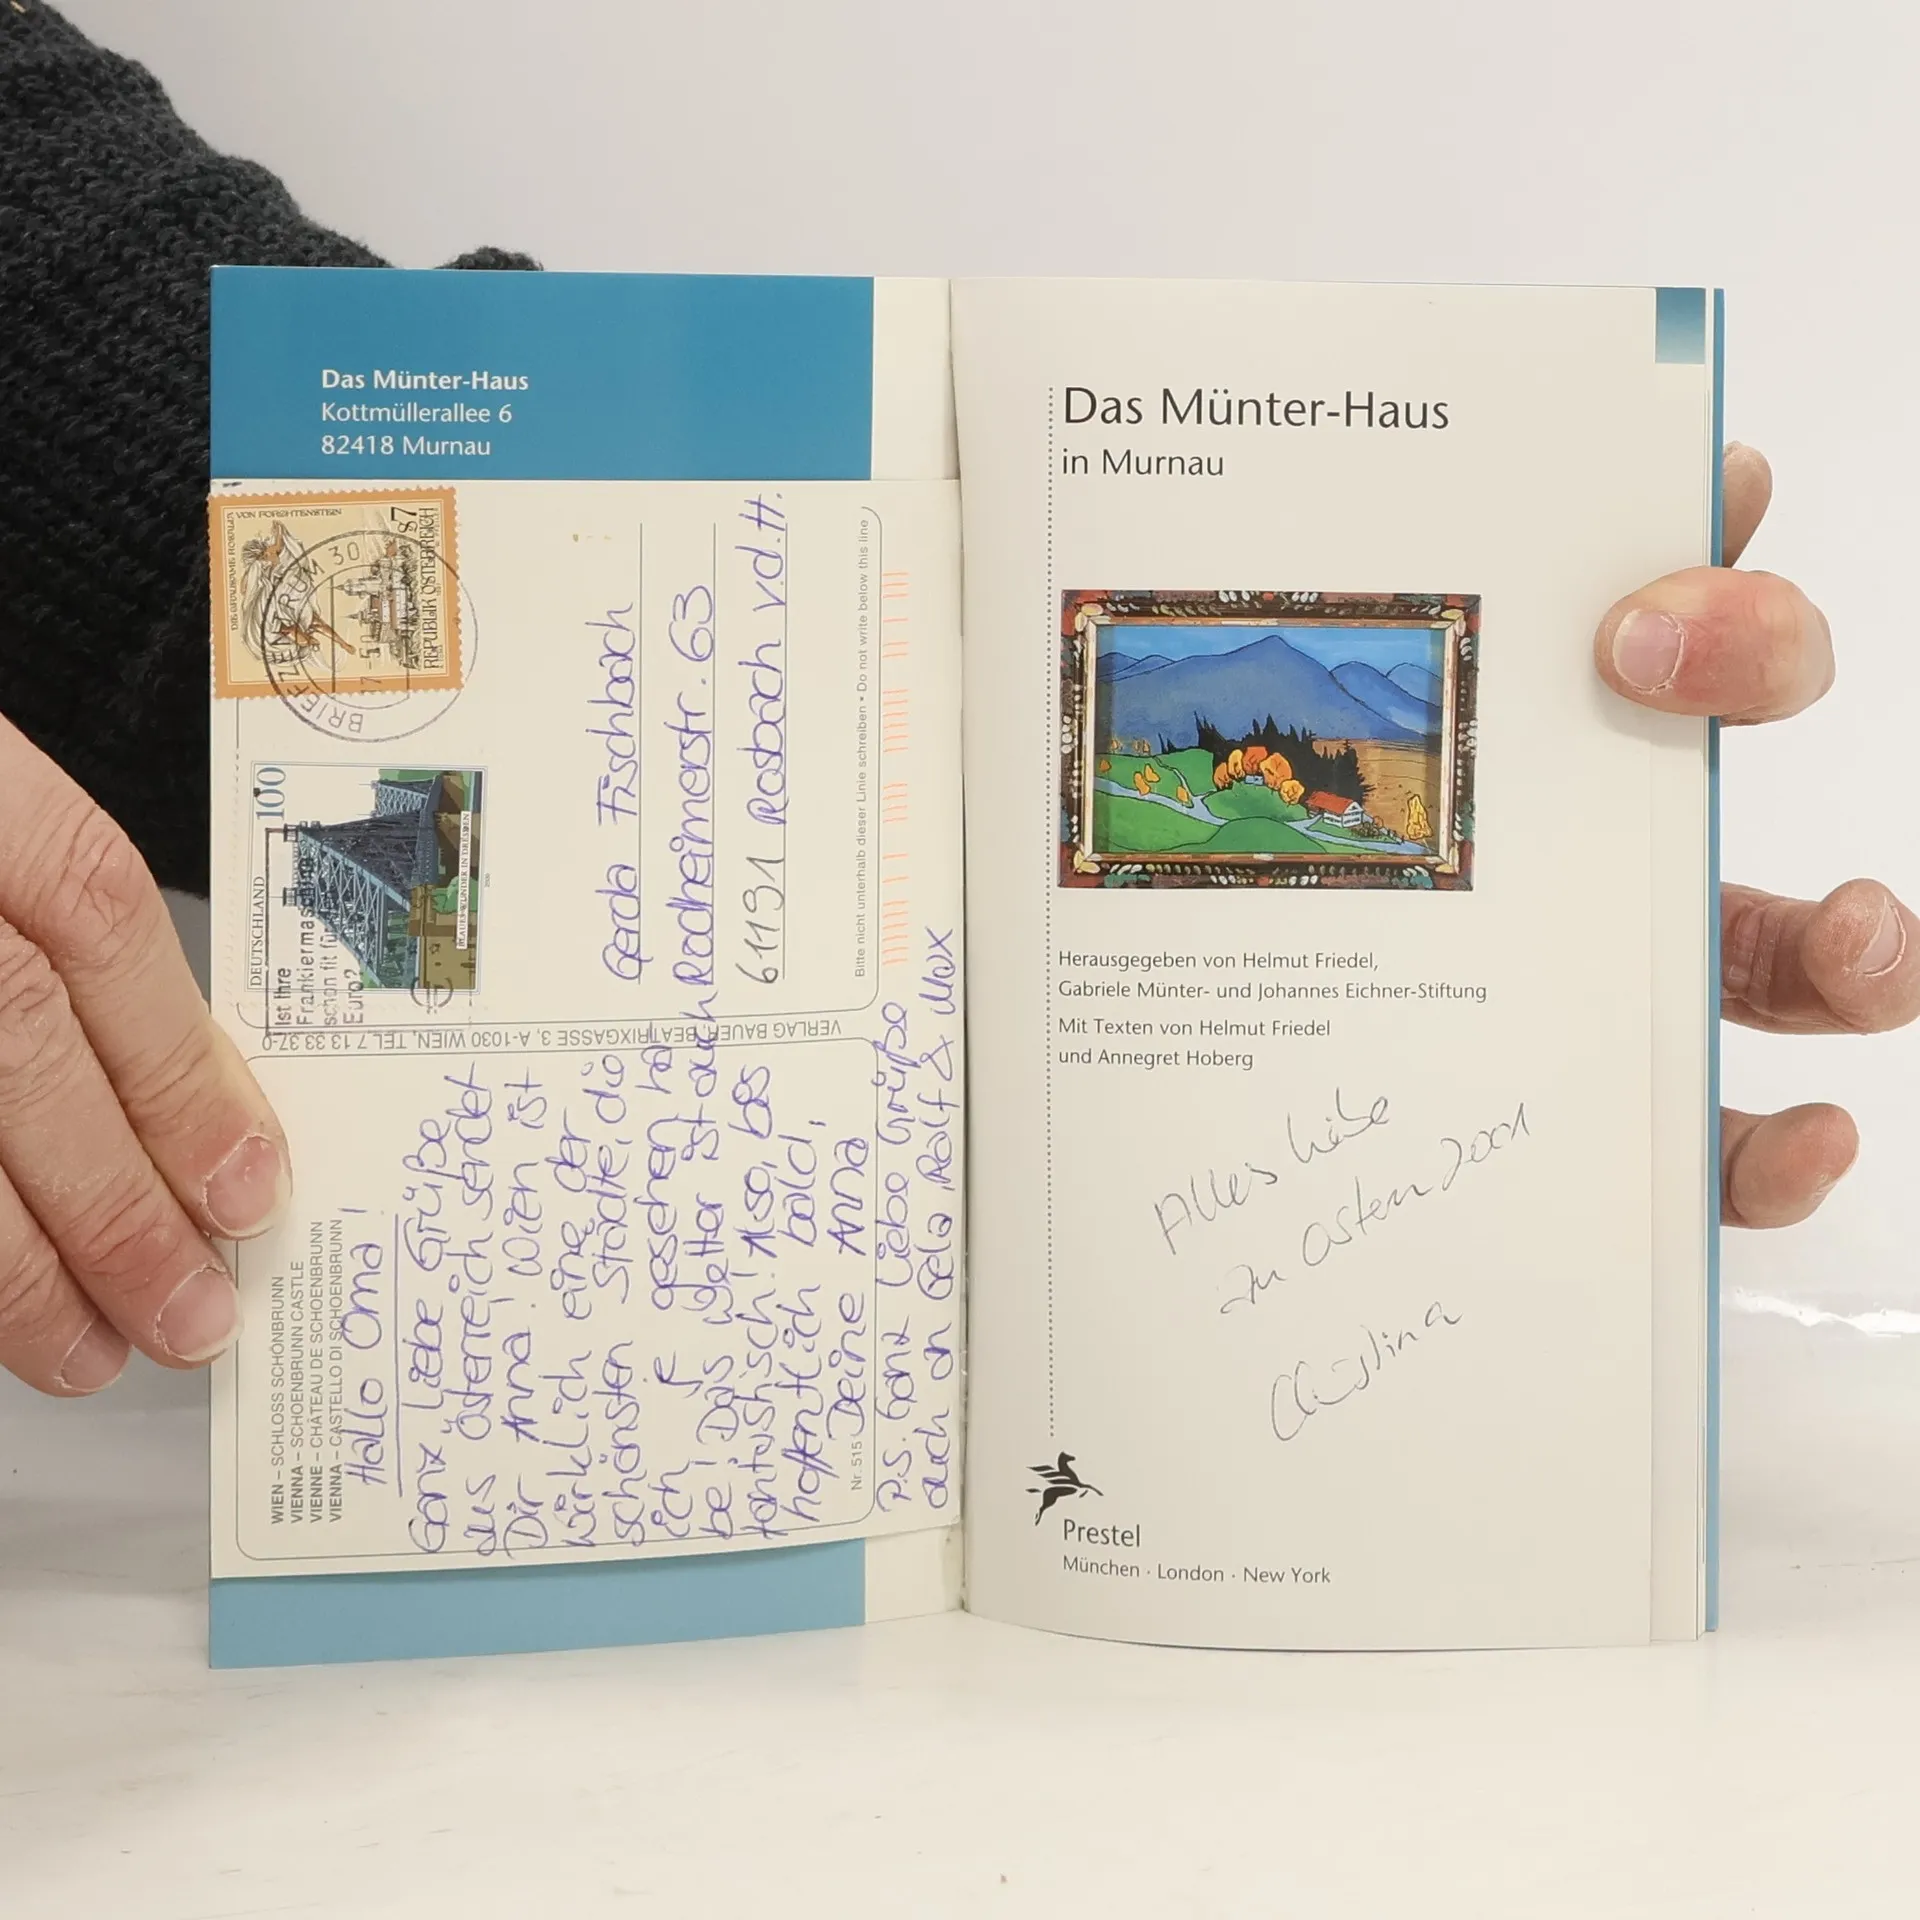 Das Münter-Haus
Kottmüllerallee 6
82418 Murnau
WIEN – SCHLOSS SCHÖNBRUNN
VIENNA – SCHOENBRUNN CASTLE
VIENNE – CHÂTEAU DE SCHOENBRUNN
VIENNA – CASTELLO DI SCHOENBRUNN
Hallo Oma!
Ganz liebe Grüße
aus Österreich sendet
Dir Anna. Wien ist
wirklich eine der
schönsten Städte, die
ich je gesehen ha
be! Das Wetter ist auch
fantastisch! Also, bis
hoffentlich bald,
Deine Anna
Nr. 515
P.S. Ganz liebe Grüße
auch an Gela, Rolf & Max
VERLAG BAUER, BEATRIXGASSE 3, A-1030 WIEN, TEL. 7 13 33 37-0
VON FORCHTENSTEIN
S7
REPUBLIK ÖSTERREICH
BRIEFZENTRUM 30
DEUTSCHLAND
100
BLAUES WUNDER IN DRESDEN
2000
Ist Ihre
Frankiermaschine
schon fit für
Euro?
Gerda Fischbach
Rodheimerstr. 63
61191 Rosbach v.d.H.
Bitte nicht unterhalb dieser Linie schreiben • Do not write below this line
Das Münter-Haus
in Murnau
Herausgegeben von Helmut Friedel,
Gabriele Münter- und Johannes Eichner-Stiftung
Mit Texten von Helmut Friedel
und Annegret Hoberg
Alles Liebe
zu Ostern 2001
Christina
Prestel
München · London · New York